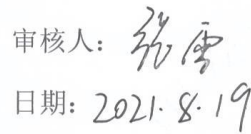 审核人：张雷
日期：2021.8.19